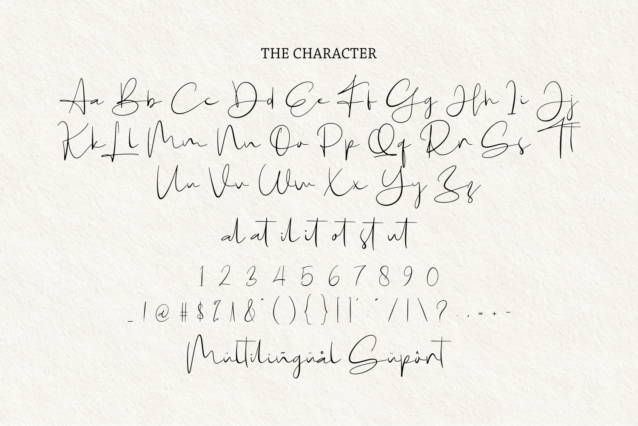 THE CHARACTER
Aa Bb Cc Dd Ee Ff Gg Hh Ii Jj
Kk Ll Mm Nn Oo Pp Qq Rr Ss Tt
Uu Vv Ww Xx Yy Zz
al at il it ot st ut
1 2 3 4 5 6 7 8 9 0
_ ! @ # $ % ^ & * ( ) { } | | " / | \ ? . , = + -
Mültilingüål Süpôrt